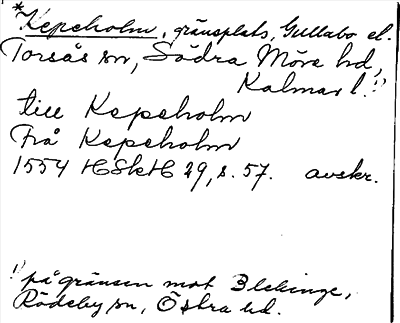 *Kepeholm, gränsplats, Gullabo el.
Torsås sn, Södra Möre hd,
Kalmar l.¹⁾
till Kepeholm
Från Kepeholm
1554 HSkH 29, s. 57. avskr.
¹⁾ på gränsen mot Blekinge,
Rödeby sn, Östra hd.